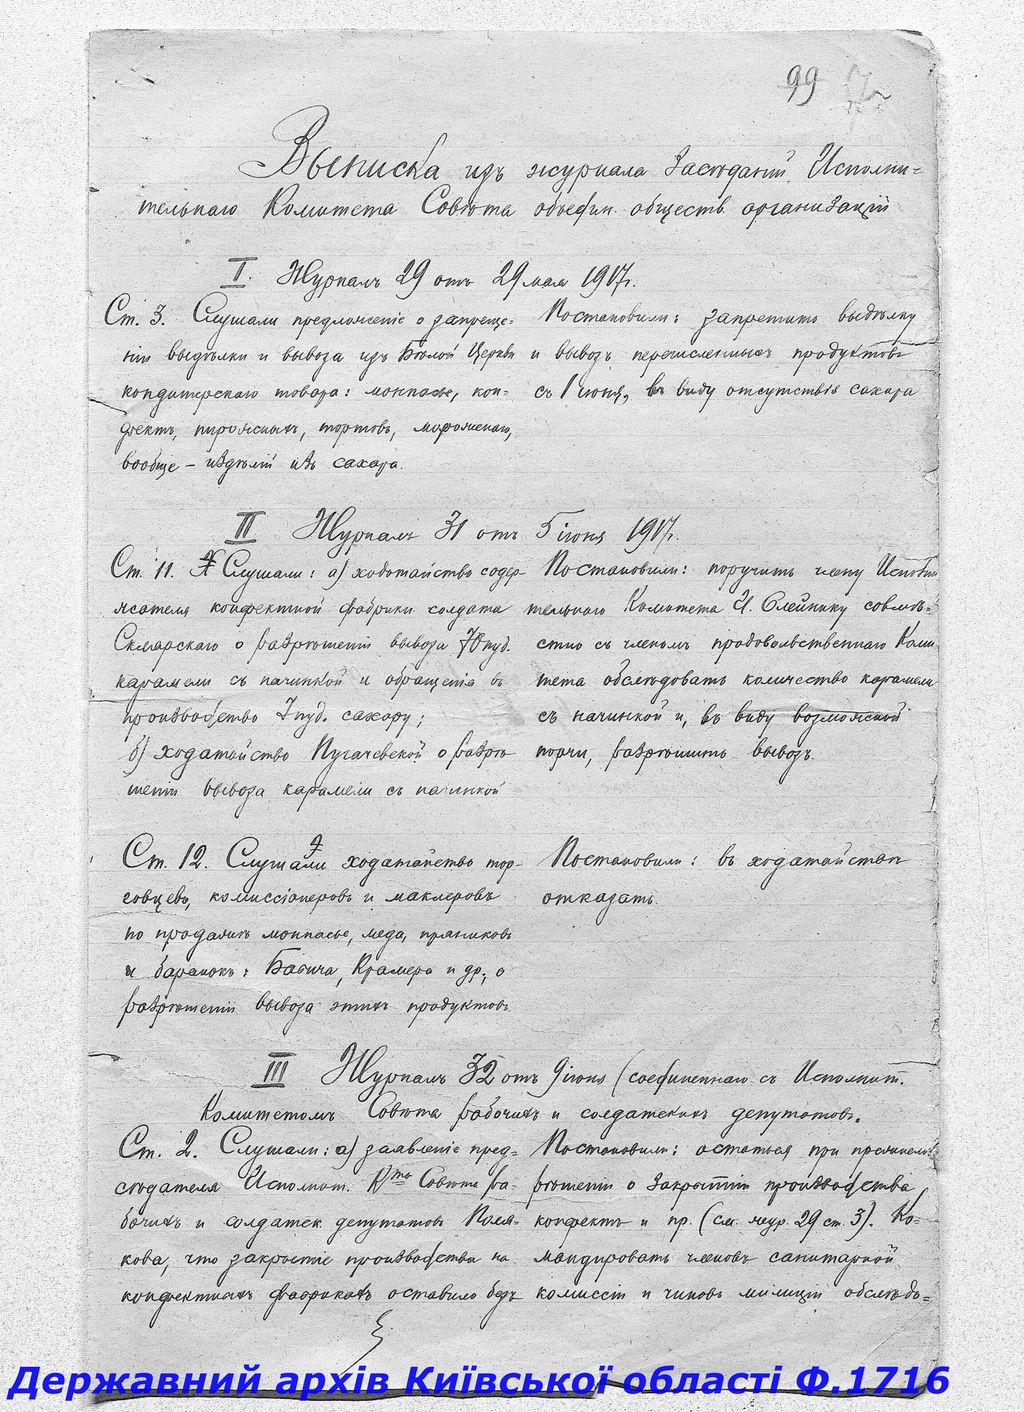 99
Выписка изъ журнала Засѣданій Исполни=
тельнаго Комитета Совѣта объедин. обществ. организацій
I. Журналъ 29 отъ 29 мая 1917г.
Ст. 3. Слушали предложеніе о запреще-
ніи выдѣлки и вывоза изъ Бѣлой Церкви
кондитерскаго товара: монпасье, кон-
фектъ, пирожныхъ, тортовъ, мороженаго,
вообще – издѣлій изъ сахара.
Постановили: запретить выдѣлку
и вывозъ перечисленныхъ продуктовъ
съ 1 іюня, въ виду отсутствія сахара
II Журналъ 31 отъ 5 іюня 1917г.
Ст. 11. Слушали: а) ходотайство содер-
жателя конфектной фабрики солдата
Склярскаго о разрѣшеніи вывоза 70 пуд.
карамели съ начинкой и обращенія въ
производство 7 пуд. сахару;
б) ходатайство Пугачевской о разрѣ-
шеніи вывоза карамели съ начинкой
Постановили: поручить члену Исполни
тельнаго Комитета И. Олейнику совмѣ-
стно съ членомъ продовольственнаго Коми-
тета обслѣдовать количество карамели
съ начинкой и, въ виду возможной
порчи, разрѣшить вывозъ.
Ст. 12. Слушали ходатайство тор-
говцевъ, комиссіонеровъ и маклеровъ
по продажѣ монпасье, меда, пряниковъ
и баранокъ: Крамера и др., о
разрѣшеніи вывоза этихъ продуктовъ
Постановили: въ ходатайствѣ
отказать.
III Журналъ 32 отъ 9 іюня (соединеннаго съ Исполнит.
Комитетомъ Совѣта рабочихъ и солдатскихъ депутатовъ.
Ст. 2. Слушали: а) заявленіе пред-
сѣдателя Исполнит. К-та Совѣта ра-
бочихъ и солдатск. депутатовъ Поля-
кова, что закрытіе производства на
конфектныхъ фабрикахъ оставило безъ
Постановили: остаться при прежнемъ
рѣшеніи о закрытіи производства
конфектъ и пр. (см. жур. 29 ст. 3). Ко-
мандировать членовъ санитарной
комиссіи и чиновъ милиціи обслѣдо-
Державний архів Київської області Ф.1716